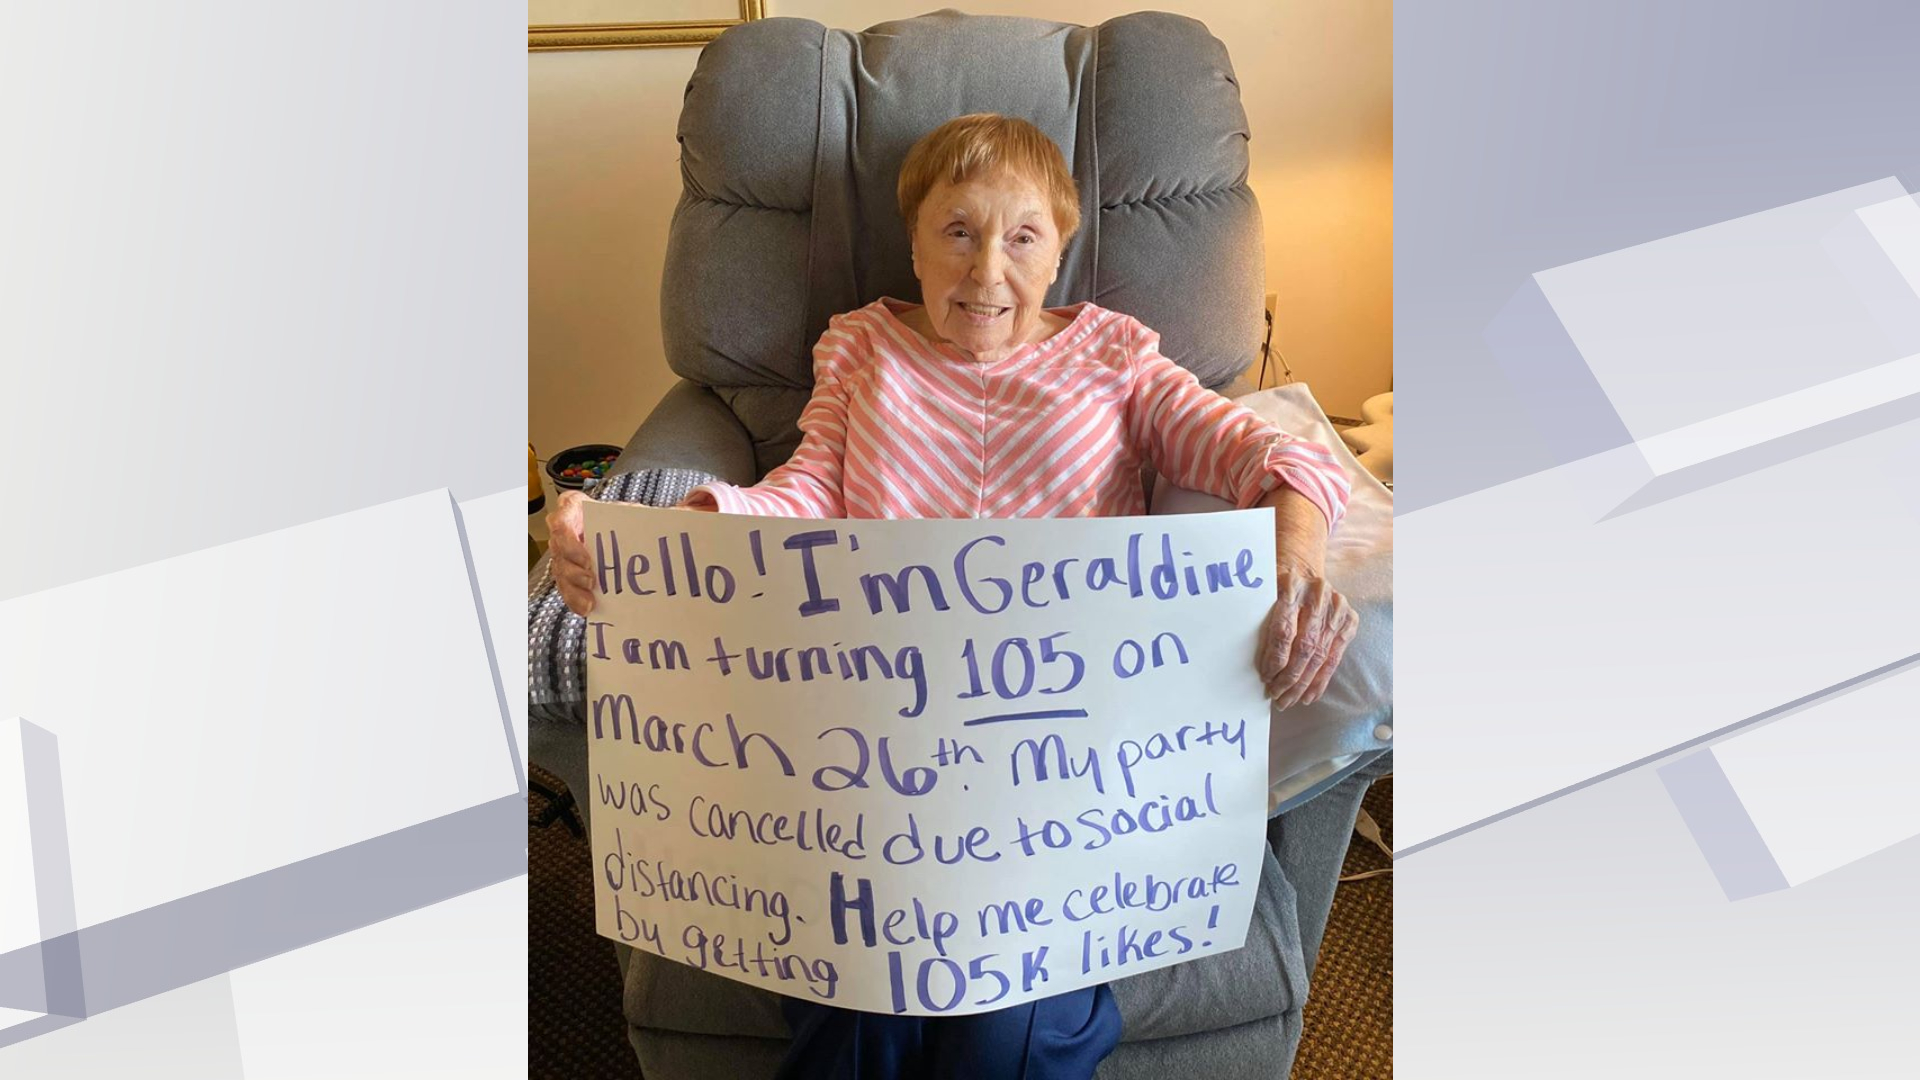 Hello! I'm Geraldine
I am turning 105 on
March 26th. My party
was cancelled due to social
distancing. Help me celebrate
by getting 105K likes!